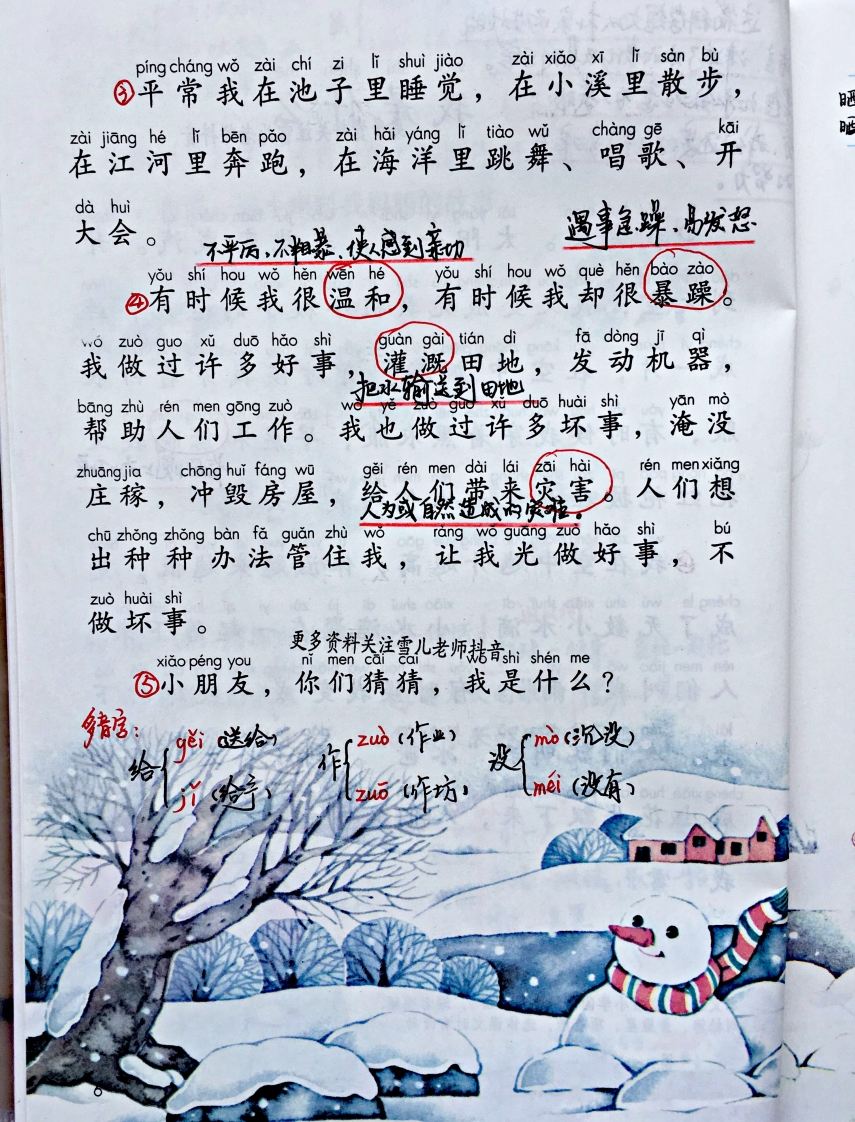 píng cháng wǒ zài chí zi lǐ shuì jiào zài xiǎo xī lǐ sàn bù
③平常我在池子里睡觉，在小溪里散步，
zài jiāng hé lǐ bēn pǎo zài hǎi yáng lǐ tiào wǔ chàng gē kāi
在江河里奔跑，在海洋里跳舞、唱歌、开
dà huì
大会。
不严厉，不粗暴、使人感到亲切 遇事急躁、易发怒
yǒu shí hou wǒ hěn wēn hé yǒu shí hou wǒ què hěn bào zào
④有时候我很温和，有时候我却很暴躁。
wǒ zuò guo xǔ duō hǎo shì guàn gài tián dì fā dòng jī qì
我做过许多好事，灌溉田地，发动机器，
把水输送到田地
bāng zhù rén men gōng zuò wǒ yě zuò guo xǔ duō huài shì yān mò
帮助人们工作。我也做过许多坏事，淹没
zhuāng jia chōng huǐ fáng wū gěi rén men dài lái zāi hài rén men xiǎng
庄稼，冲毁房屋，给人们带来灾害。人们想
人为或自然造成的灾难。
chū zhǒng zhǒng bàn fǎ guǎn zhù wǒ ràng wǒ guāng zuò hǎo shì bú
出种种办法管住我，让我光做好事，不
zuò huài shì
做坏事。
更多资料关注雪儿老师抖音
xiǎo péng you nǐ men cāi cai wǒ shì shén me
⑤小朋友，你们猜猜，我是什么？
多音字：
给 gěi（送给） 作 zuò（作业） 没 mò（沉没）
jǐ（给予） zuō（作坊） méi（没有）
6